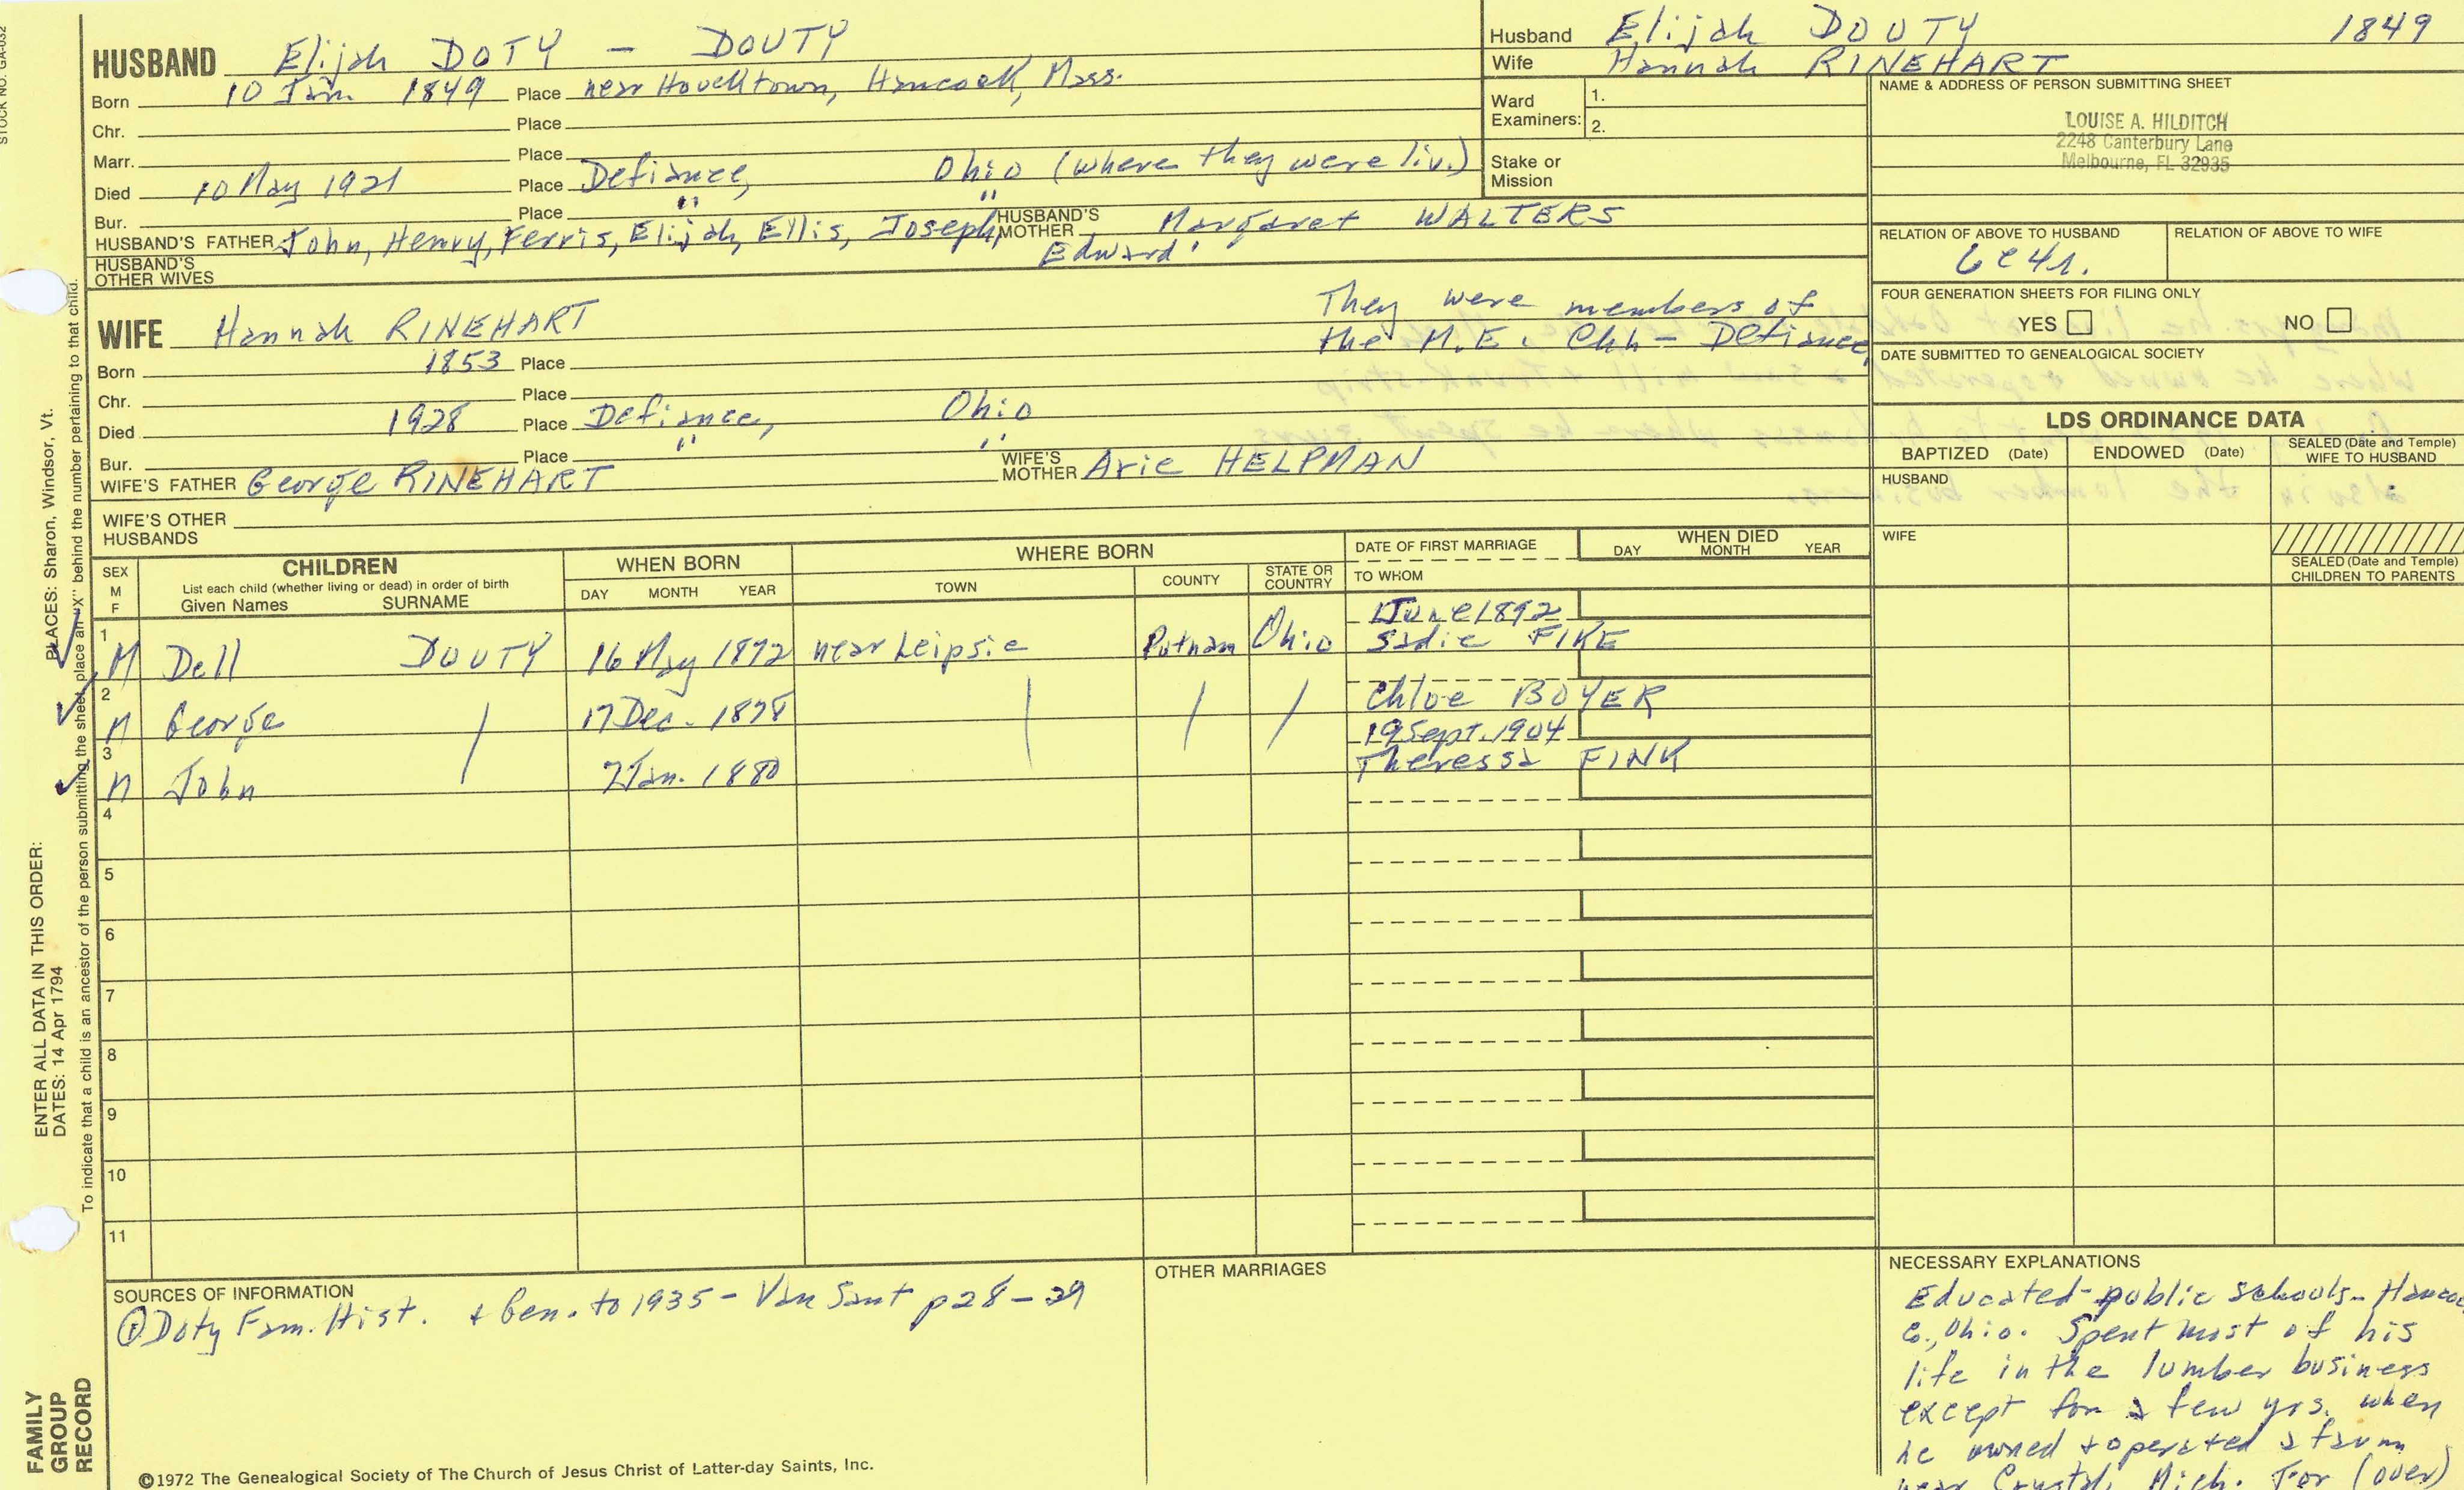 STOCK NO. GA-032
HUSBAND Elijah DOTY - DOUTY
Born 10 Jan 1849 Place near Houcktown, Hancock, Mass.
Chr. Place
Marr. Place
Died 10 May 1921 Place Defiance, Ohio (where they were liv.)
Bur. Place " "
HUSBAND'S FATHER John, Henry, Ferris, Elijah, Ellis, Joseph, Edward' HUSBAND'S MOTHER Margaret WALTERS
HUSBAND'S OTHER WIVES
WIFE Hannah RINEHART
They were members of
the M.E. Chh - Defiance,
Born 1853 Place
Chr. Place
Died 1928 Place Defiance, Ohio
Bur. Place " "
WIFE'S FATHER George RINEHART WIFE'S MOTHER Arie HELPMAN
WIFE'S OTHER HUSBANDS
Husband Elijah DOUTY 1849
Wife Hannah RINEHART
Ward Examiners: 1.
2.
Stake or Mission
NAME & ADDRESS OF PERSON SUBMITTING SHEET
LOUISE A. HILDITCH
2248 Canterbury Lane
Melbourne, FL 32935
RELATION OF ABOVE TO HUSBAND RELATION OF ABOVE TO WIFE
6c4r.
FOUR GENERATION SHEETS FOR FILING ONLY
YES NO
DATE SUBMITTED TO GENEALOGICAL SOCIETY
LDS ORDINANCE DATA
BAPTIZED (Date) ENDOWED (Date) SEALED (Date and Temple) WIFE TO HUSBAND
HUSBAND
WIFE
SEALED (Date and Temple) CHILDREN TO PARENTS
SEX M F
CHILDREN
List each child (whether living or dead) in order of birth
Given Names SURNAME
WHEN BORN
DAY MONTH YEAR
WHERE BORN
TOWN COUNTY STATE OR COUNTRY
DATE OF FIRST MARRIAGE
TO WHOM
WHEN DIED
DAY MONTH YEAR
1 M Dell DOUTY 16 May 1872 near Leipsic Putnam Ohio 1 June 1892
Sadie FIKE
2 M George 17 Dec. 1878 Chloe BOYER
3 M John 7 Jan. 1880 19 Sept. 1904
Theressa FINK
4
5
6
7
8
9
10
11
SOURCES OF INFORMATION
① Doty Fam. Hist. + Gen. to 1935 - Van Sant p28-29
OTHER MARRIAGES
NECESSARY EXPLANATIONS
Educated - public schools - Hancoc
Co., Ohio. Spent most of his
life in the lumber business
except for a few yrs. when
he owned + operated a farm
near Crystal, Mich. For (over)
©1972 The Genealogical Society of The Church of Jesus Christ of Latter-day Saints, Inc.
PLACES: Sharon, Windsor, Vt.
To indicate that a child is an ancestor of the person submitting the sheet, place an "X" behind the number pertaining to that child.
ENTER ALL DATA IN THIS ORDER:
DATES: 14 Apr 1794
FAMILY
GROUP
RECORD